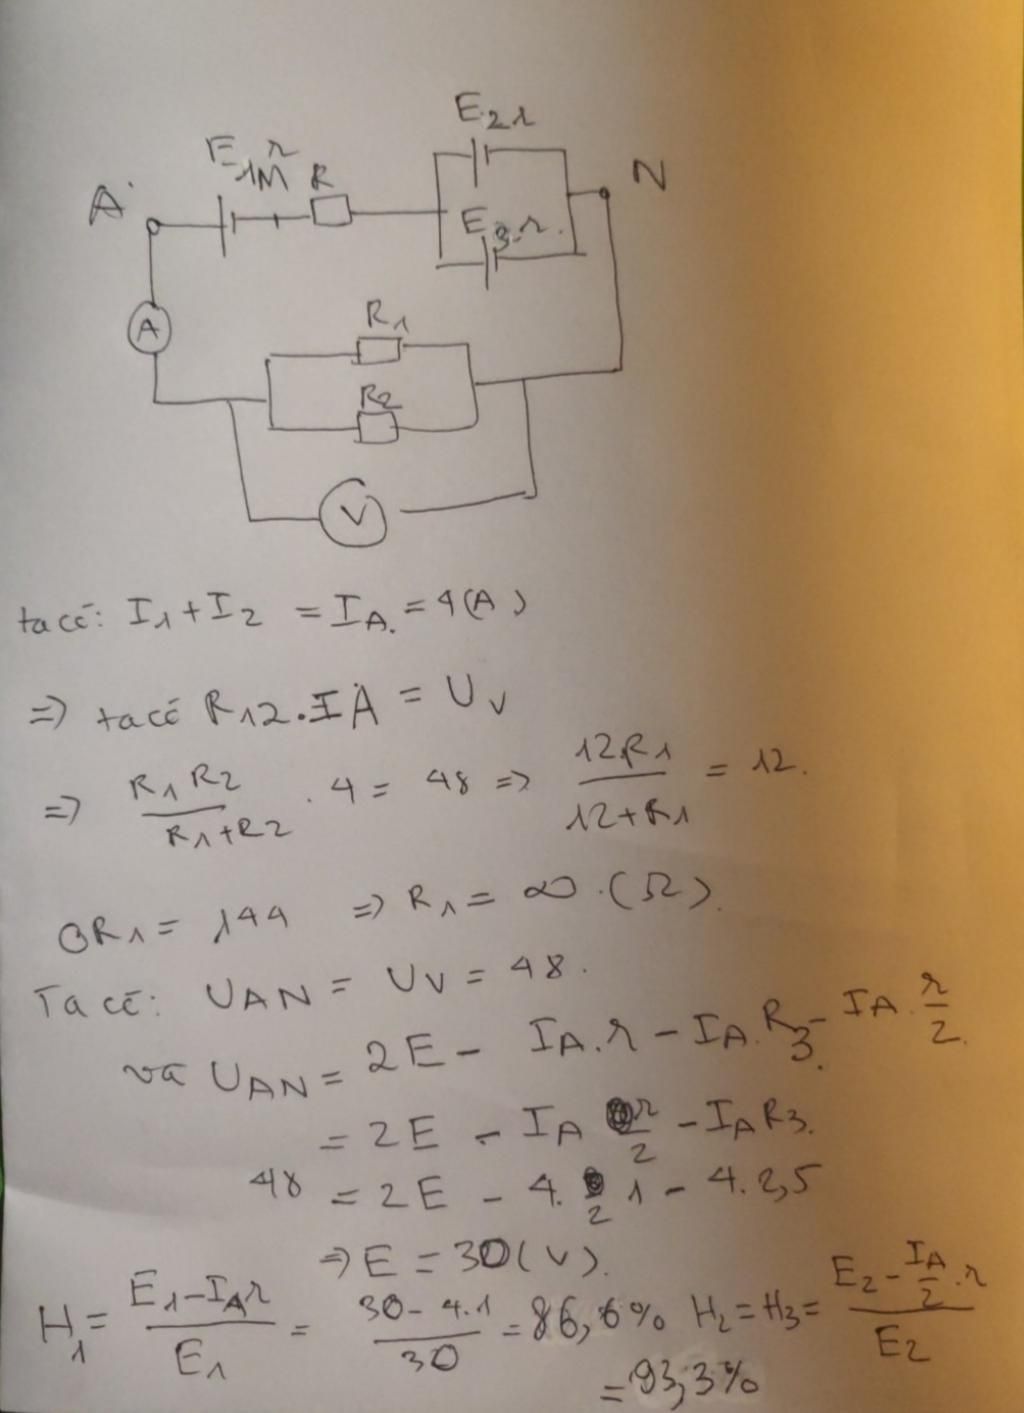 E₂r
E₁ r
M
R
A
N
E₃ r.
R₁
A
R₂
V
ta có: I₁ + I₂ = I_A. = 4(A)
=> ta có R₁₂.I_A = U_V
=> R₁R₂/(R₁+R₂) . 4 = 48 => 12R₁/(12+R₁) = 12.
0R₁ = 144 => R₁ = ∞.(Ω).
Ta có: U_AN = U_V = 48.
và U_AN = 2E - I_A.r - I_A.R₃ - I_A.r/2.
= 2E - I_A r/2 - I_A R₃.
48 = 2E - 4. /2 1 - 4.2,5
=> E = 30(V).
H₁ = (E₁ - I_A r)/E₁ = (30 - 4.1)/30 = 86,6% H₂ = H₃ = (E₂ - I_A/2 .r)/E₂
= 93,3%